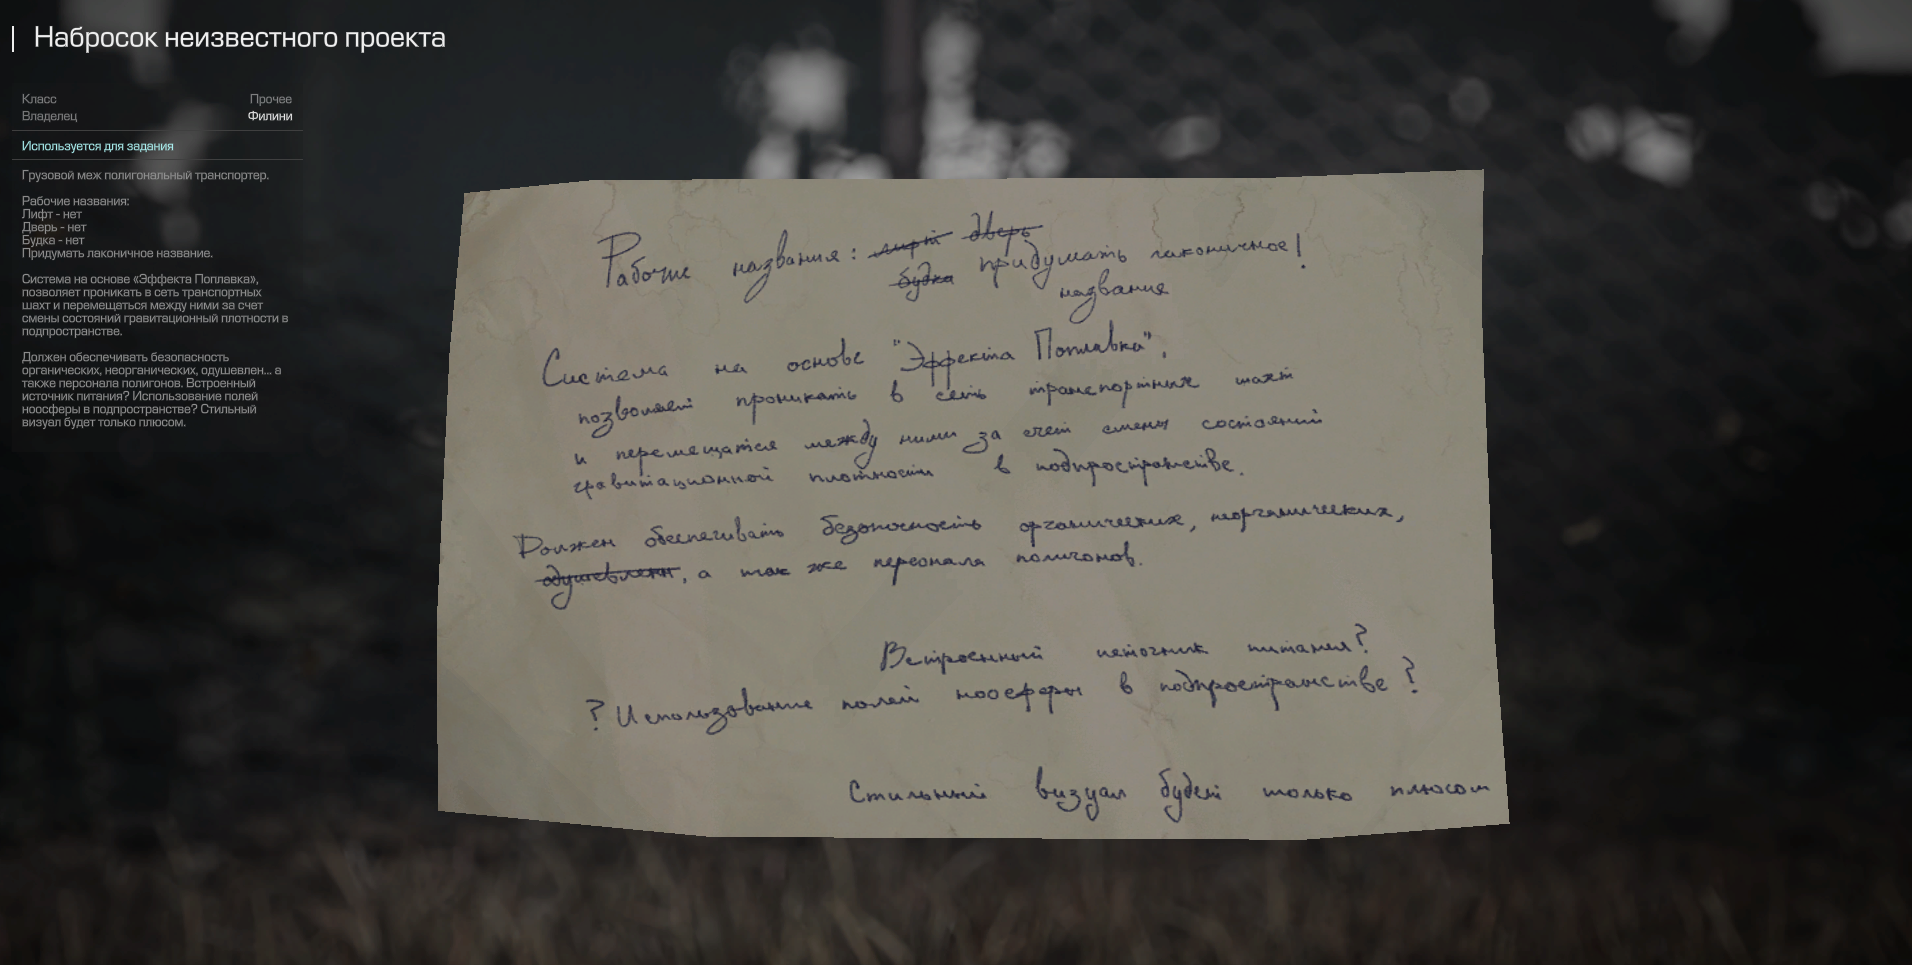 Набросок неизвестного проекта
Класс Прочее
Владелец Филини
Используется для задания
Грузовой меж полигональный транспортер.
Рабочие названия:
Лифт - нет
Дверь - нет
Будка - нет
Придумать лаконичное название.
Система на основе «Эффекта Поплавка»,
позволяет проникать в сеть транспортных
шахт и перемещаться между ними за счет
смены состояний гравитационный плотности в
подпространстве.
Должен обеспечивать безопасность
органических, неорганических, одушевлен... а
также персонала полигонов. Встроенный
источник питания? Использование полей
ноосферы в подпространстве? Стильный
визуал будет только плюсом.
Рабочие названия: лифт дверь
будка придумать лаконичное!
название
Система на основе "Эффекта Поплавка",
позволяет проникать в сеть транспортных шахт
и перемещатся между ними за счет смены состояний
гравитационной плотности в подпространстве.
Должен обеспечивать безопасность органических, неорганических,
одушевленн, а так же персонала полигонов.
Встроенный источник питания?
? Использование полей ноосферы в подпространстве?
Стильный визуал будет только плюсом